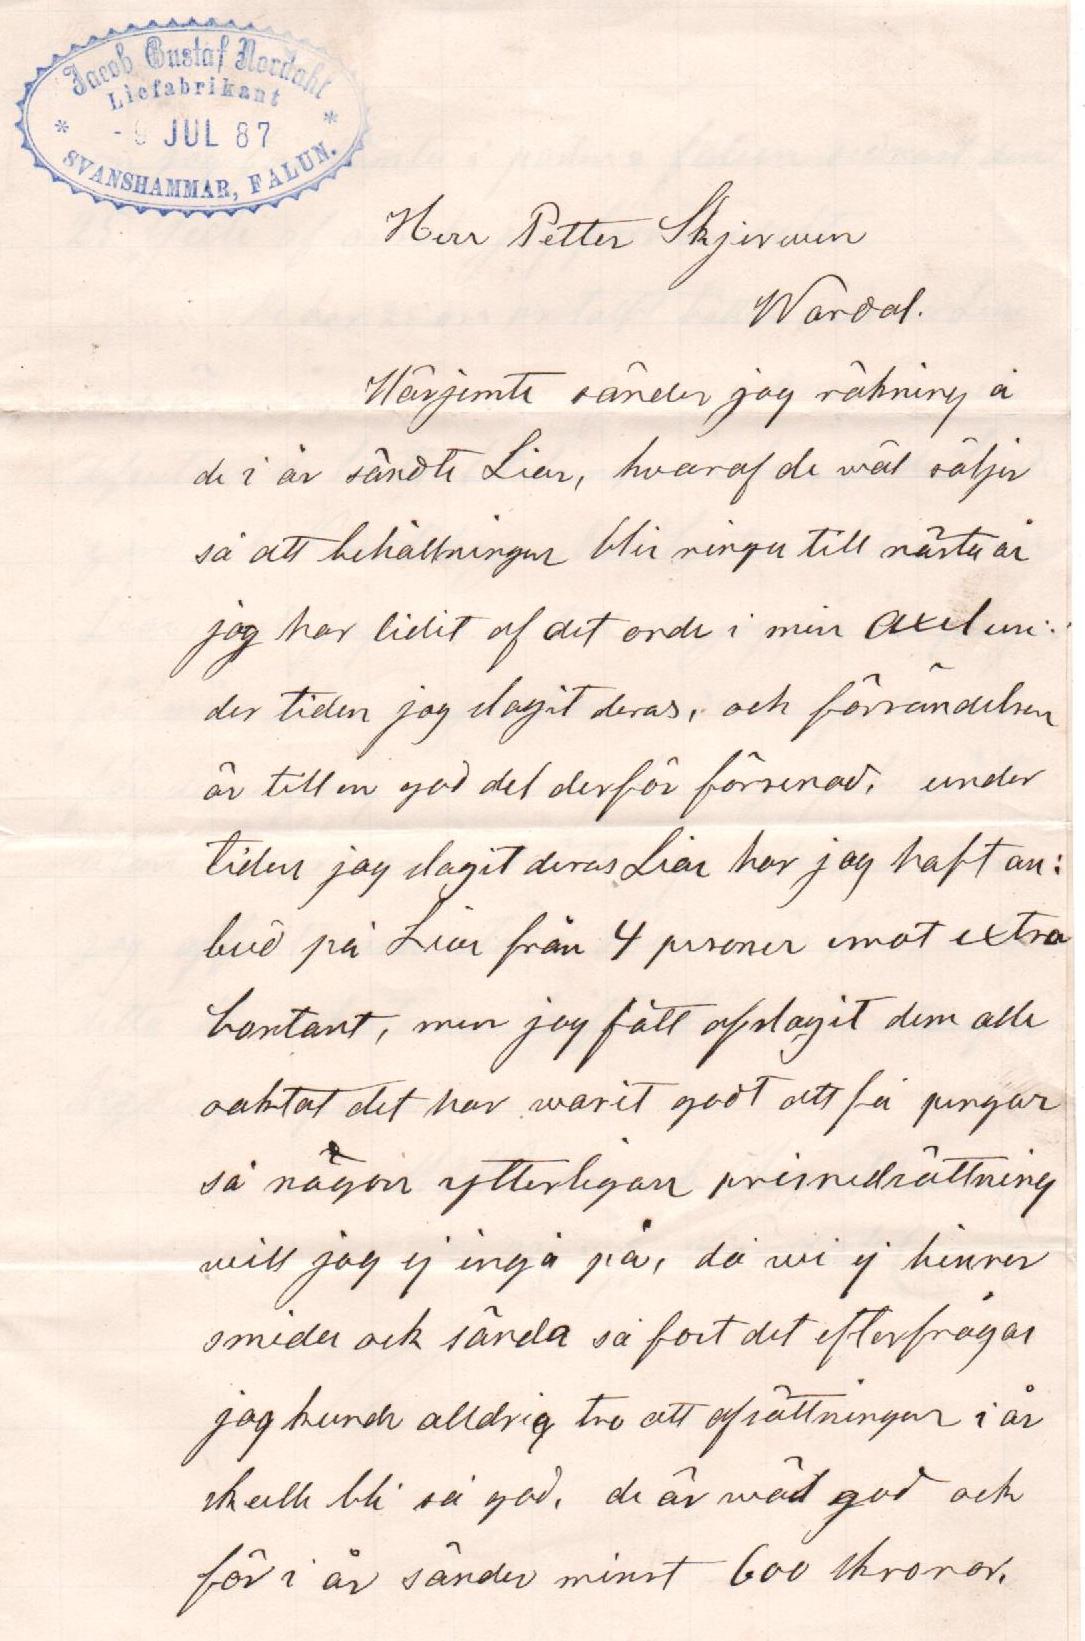 Jacob Gustaf Nordahl
Liefabrikant
* - 9 JUL 87 *
SVANSHAMMAR, FALUN.
Herr Petter Skjerwen
Wärdal.
Härjemte sänder jag räkning å
de i år sändte Liar, hvaraf de wäl säljer
så att behållningen blir ringa till nästa år
jag har lidit af det onda i min axel un:
der tiden jag slagit deras, och försändelsen
är till en god del derför försenad, under
tiden jag slagit deras Liar har jag haft an:
bud på Liar från 4 personer emot extra
Contant, men jag fått afslagit dem alla
oaktat det har warit godt att få pengar
så någon ytterligare prisnedsättning
will jag ej ingå på, då wi ej hinner
smida och sända så fort det efterfrågas
jag kunde alldrig tro att afsättningen i år
skulle bli så god, de är wäl god och
för i år sänder minst 600 kronor.